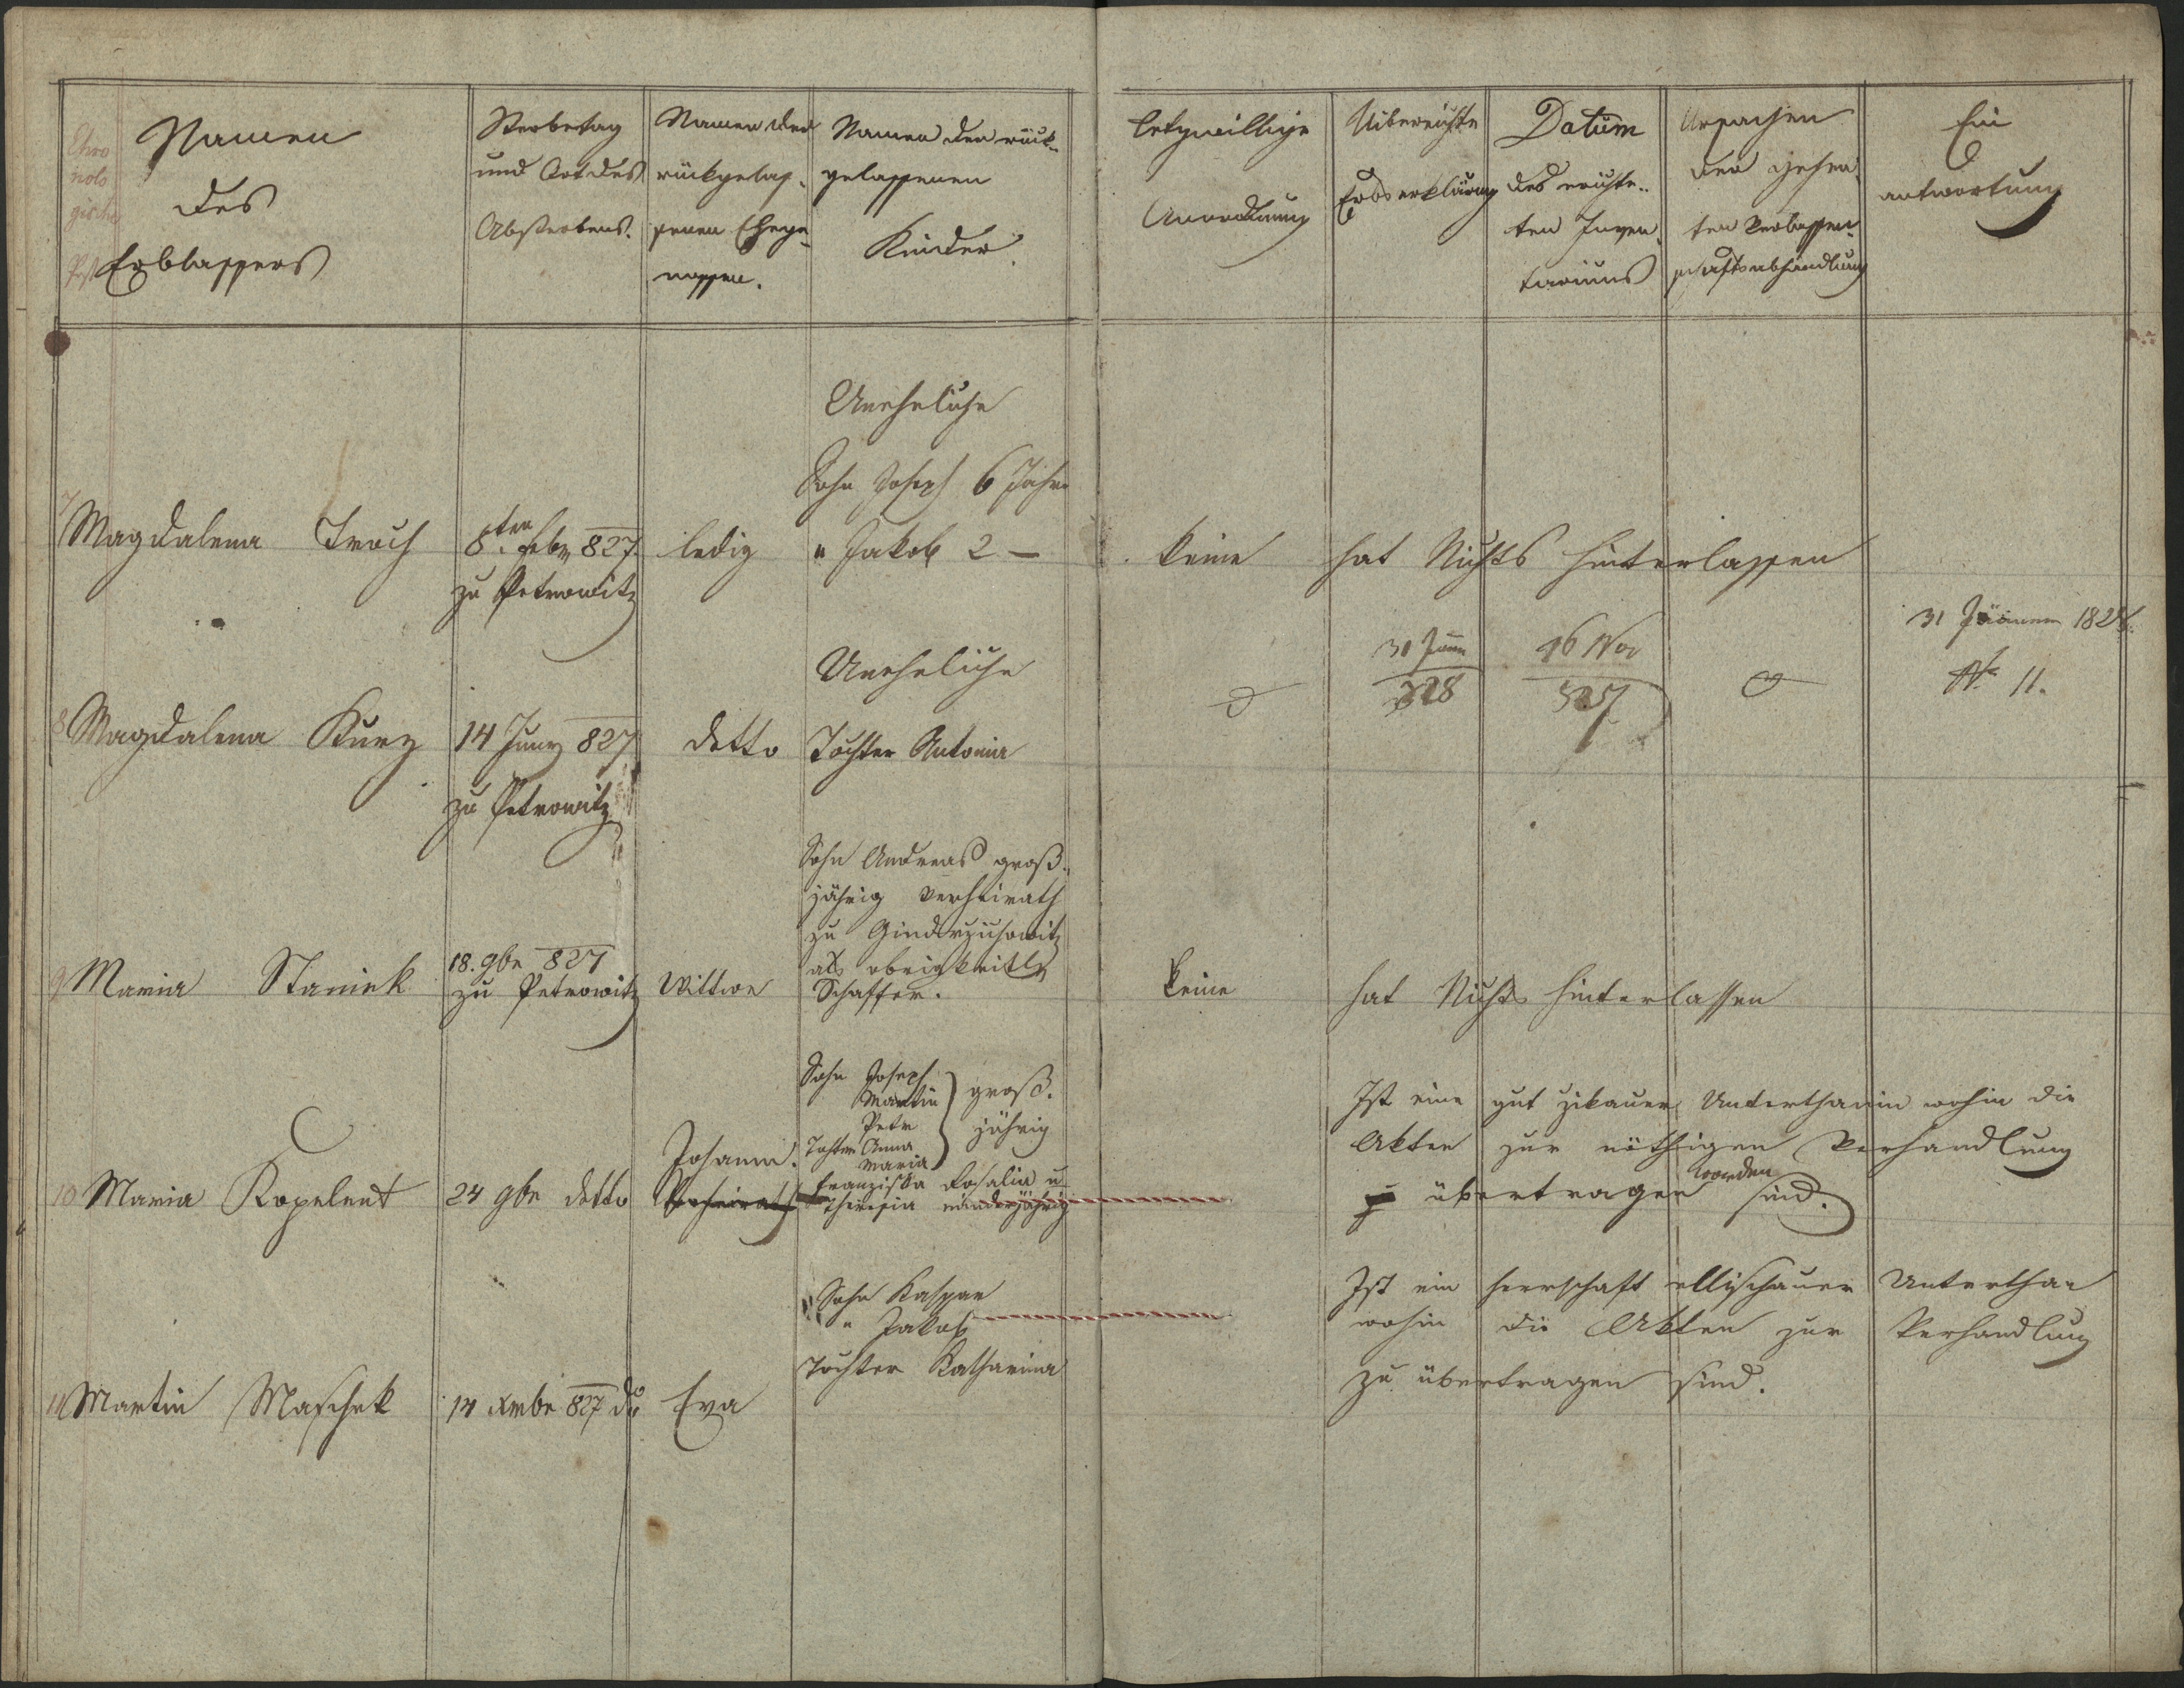 Chro
nolo
gische
Post
Namen
des
Erblassers
Sterbetag
und Ort des
Absterbens.
Namen des
rückgelas-
senen Ehege-
nossen.
Namen der rück-
gelassenen
Kinder.
letzwillige
Anordnung
Uiberreichte
Erbserklärung
Datum
des errichte-
ten Inven-
tariums
Ursachen
der
ten Verlassen-
schaftsabhandlung
Ein
antwortung
7 Magdalena Troch
8ten Feber 827.
zu Petrowitz
ledig
Uneheliche
Sohn Joseph 6 Jahre
" Jakob 2 —
keine
hat Nichts hinterlassen
8 Magdalena Kunz
14 Juny 827
zu Petrowitz
detto
Uneheliche
Tochter Antonia
31 Jänner
828
16 Nov
827
31 Jänner 1828.
N. 11.
9 Maria Staniek
18. 9br 827
zu Petrowitz
Wittwe
Sohn Andreas groß-
jährig verheirath
zu
als obrigkeitl
Schaffer.
keine
hat Nichts hinterlassen
10 Maria Kopelent
24 9br detto
Johann.
Verheirath
Sohn Joseph
Martin
Petr
Tochter Anna
Maria
groß-
jährig
Franziska Rosalia u
Theresia minderjährig
Ist eine gut zikauer Unterthanin wohin die
Akten zur nöthigen Verhandlung
übertragen worden sind.
11 Martin Maschek
14 Xmbr 827 do
Eva
Sohn Kaspar
" Jakob
Tochter Katharina
Ist ein herrschaft ellischauer Unterthan
wohin die Akten zur Verhandlung
zu übertragen sind.